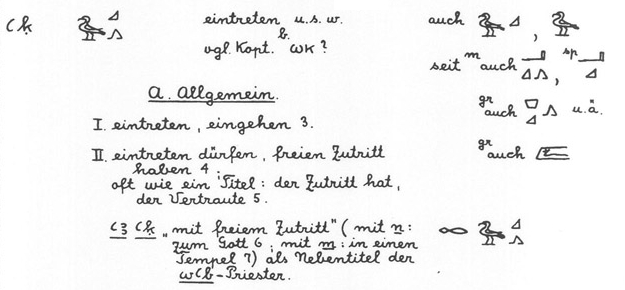 ꜥḳ 𓅧𓈎𓂻 eintreten u.s.w. auch 𓅧𓈎, 𓅧
b.
vgl. Kopt. ωκ?
seit m auch 𓂝𓈎𓂻, sp 𓂝𓈎
A. Allgemein.
gr auch u.ä.
I. eintreten, eingehen 3.
II. eintreten dürfen, freien Zutritt
haben 4;
gr auch
oft wie ein Titel: der Zutritt hat,
der Vertraute 5.
ꜥꜣ ꜥḳ „mit freiem Zutritt" (mit n: 𓅧𓈎𓂻
zum Gott 6; mit m: in einen
Tempel 7) als Nebentitel der
wꜥb-Priester.